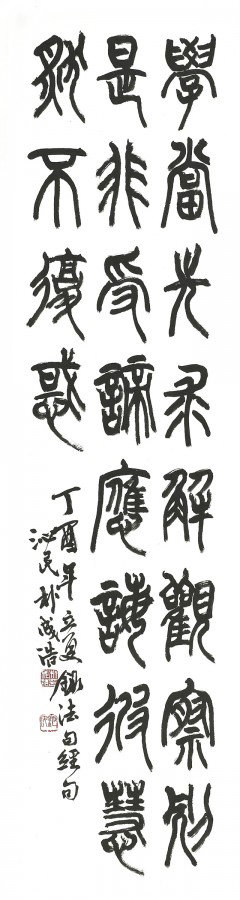 學當先求解觀察別
是非受諦應誨彼慧
然不復惑
丁酉年立夏錄法句經句
民朴成浩